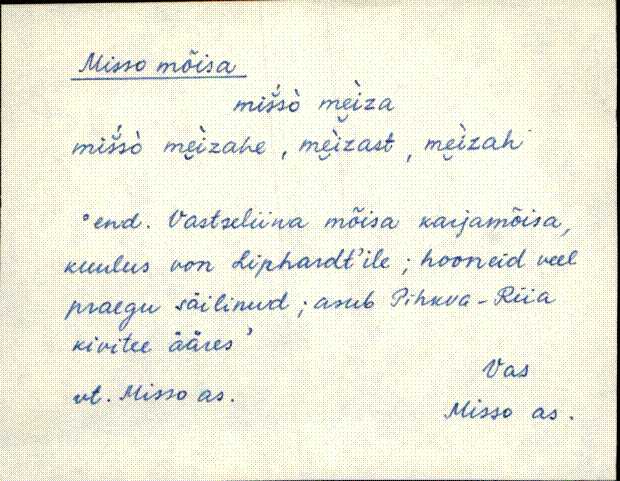 Misso mõisa
mis̆́s̆ò mẹìza
mis̆́s̆ò mẹìzahe, mẹìzast, mẹìzah
°end. Vastseliina mõisa karjamõisa,
kuulus von Liphardt'ile; hooneid veel
praegu säilinud; asub Pihkva-Riia
kivitee ääres'
Vas
vt. Misso as.
Misso as.